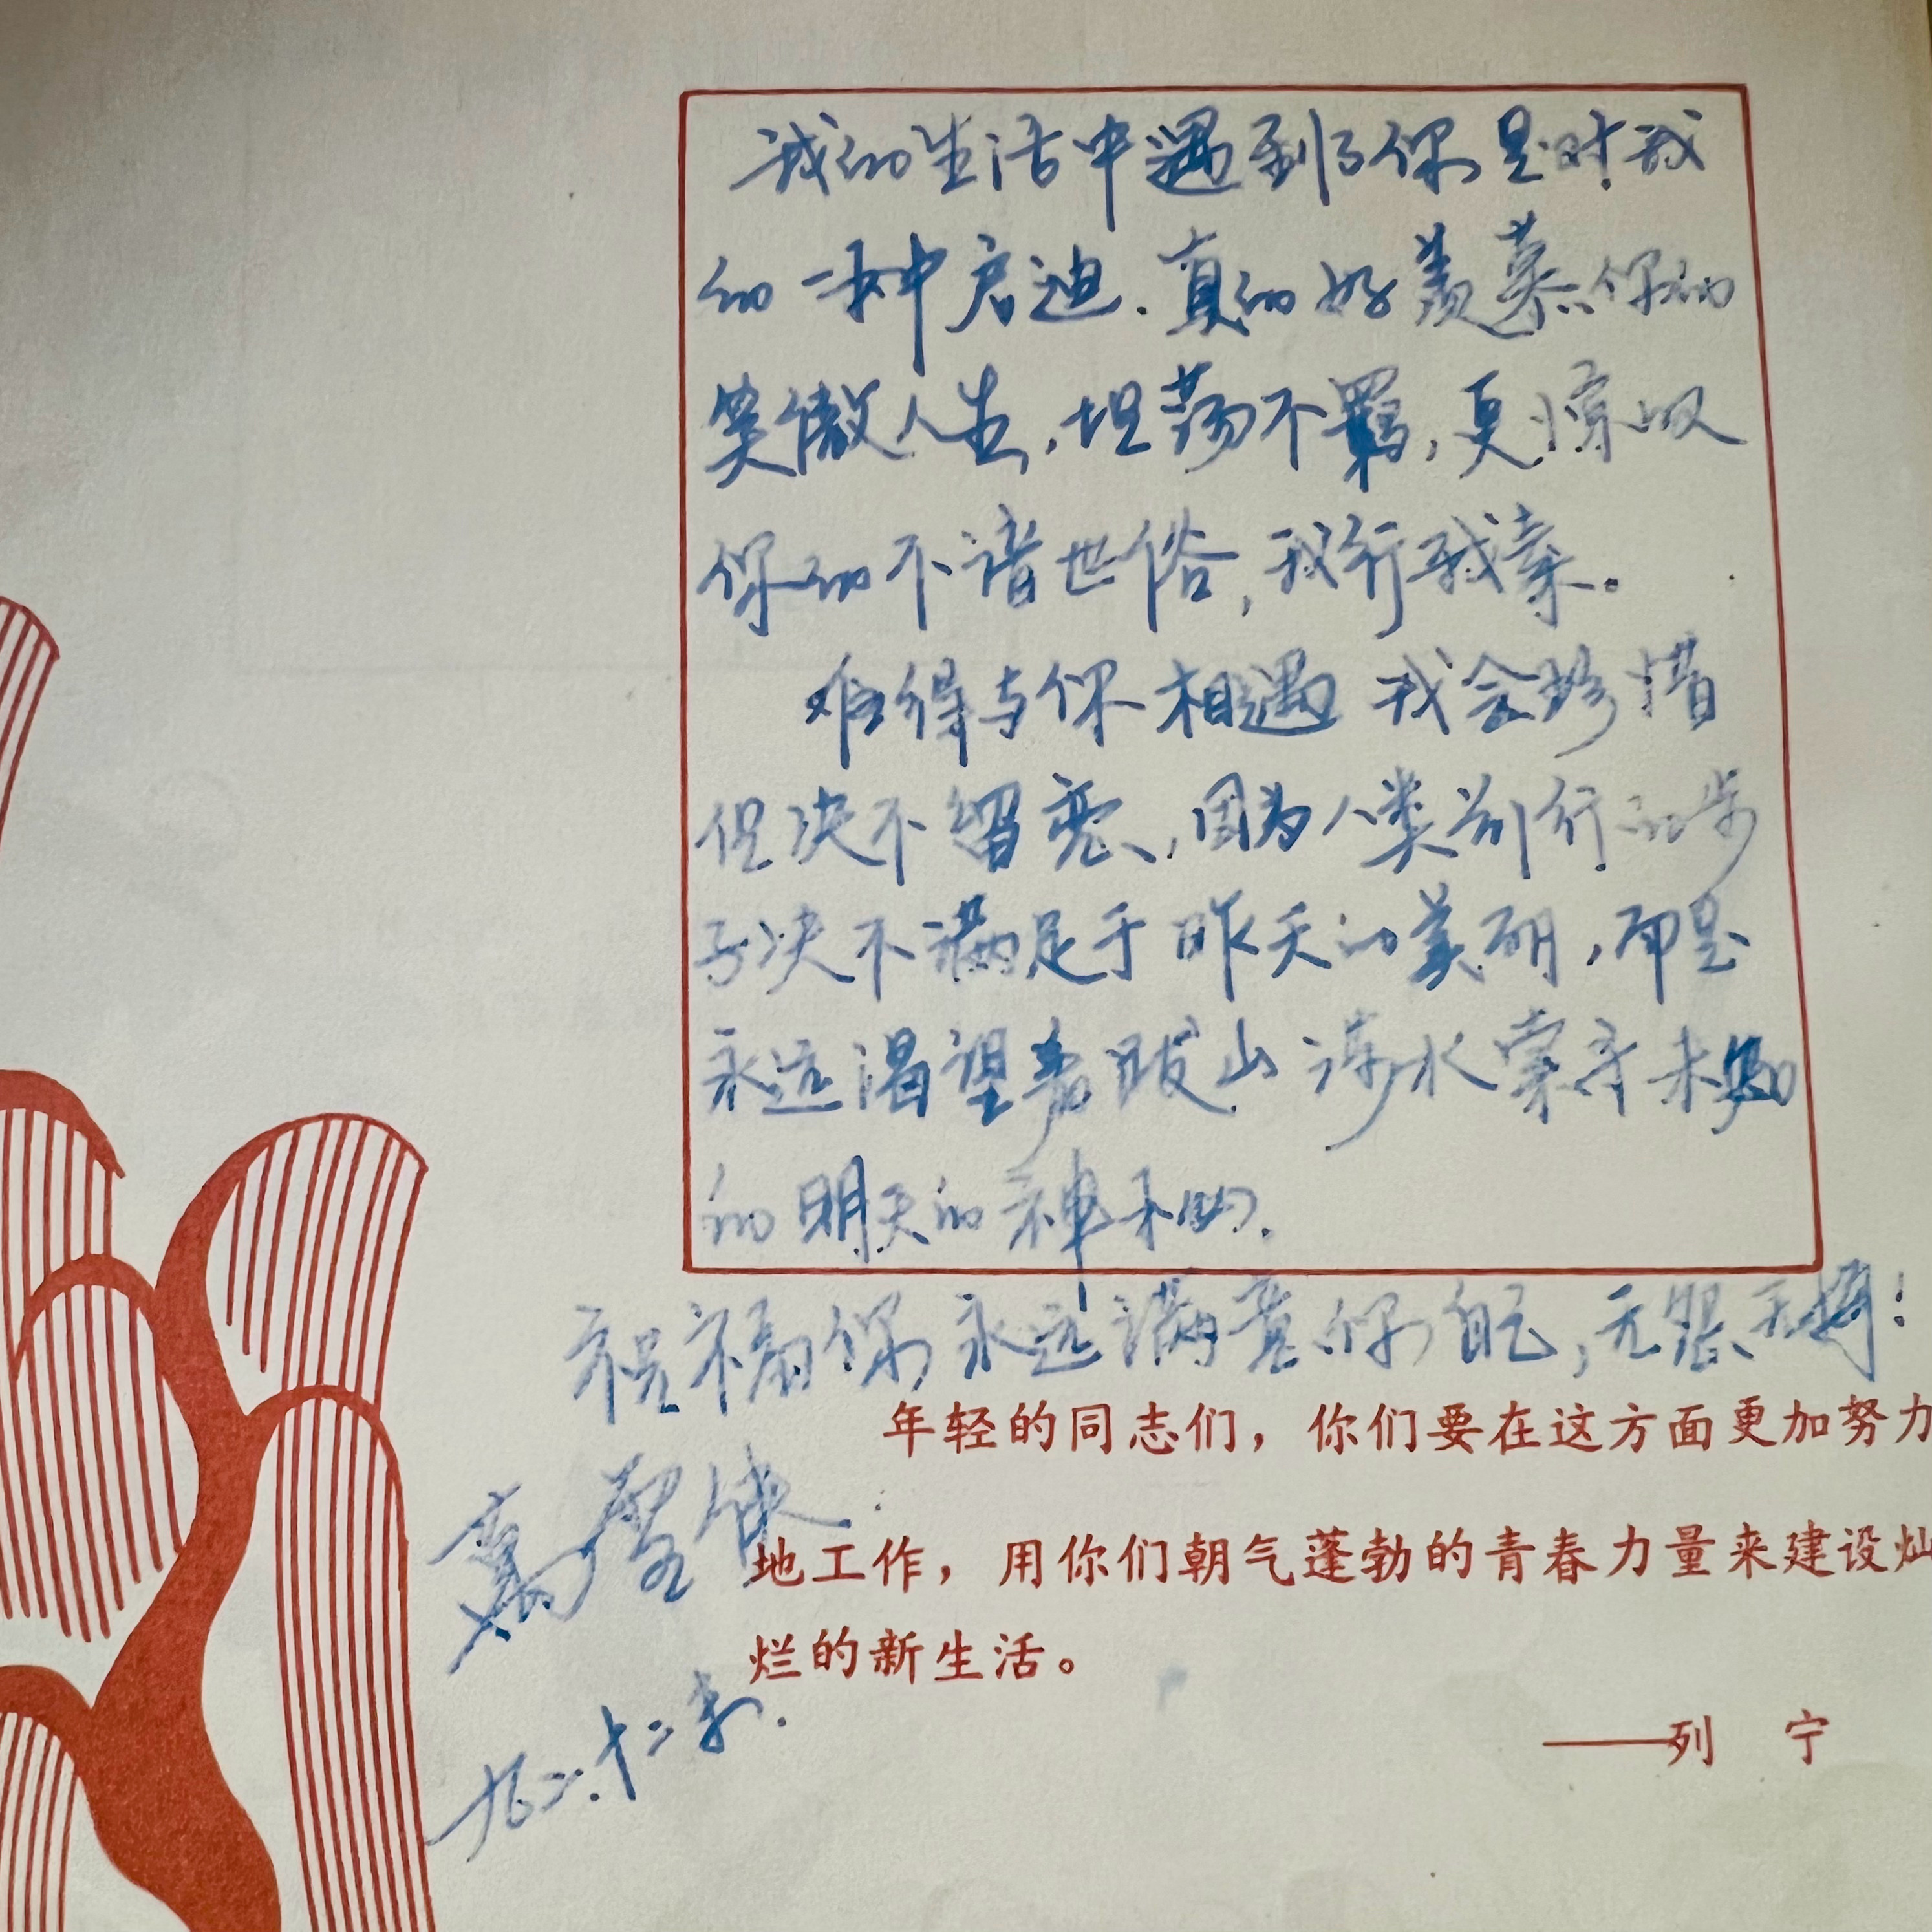 我的生活中遇到了你是对我
的一种启迪.真的好羡慕你的
笑傲人生,坦荡不羁,更惊叹
你的不谙世俗,我行我素。
难得与你相遇 我会珍惜
但决不留恋,因为人类前行的步
子决不满足于昨天的美丽,而是
永远渴望着跋山涉水索寻未知
的明天的神秘.
祝福你永远满意你自己,无怨无悔!
年轻的同志们，你们要在这方面更加努力
地工作，用你们朝气蓬勃的青春力量来建设灿
烂的新生活。
——列 宁
高
九二.十二